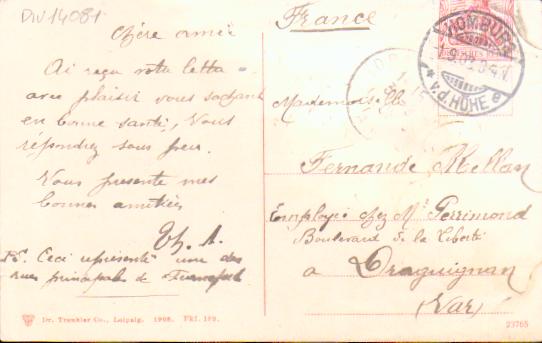 DIV 14081
Chère amie
Ai reçu votre lettre
avec plaisir vous sachant
en bonne santé, Vous
répondrez sous peu.
Vous presente mes
bonnes amitiés
Th. A.
PS. Ceci représente une des
rues principales de
Dr. Trenkler Co., Leipzig. 1908. Fkf. 189.
France
HOMBURG
v.d. HÖHE
Mademoiselle
Fernande Mellan
Employée chez Mr Perrimond
Boulevard de la Liberté
à Draguignan
(Var)
23765